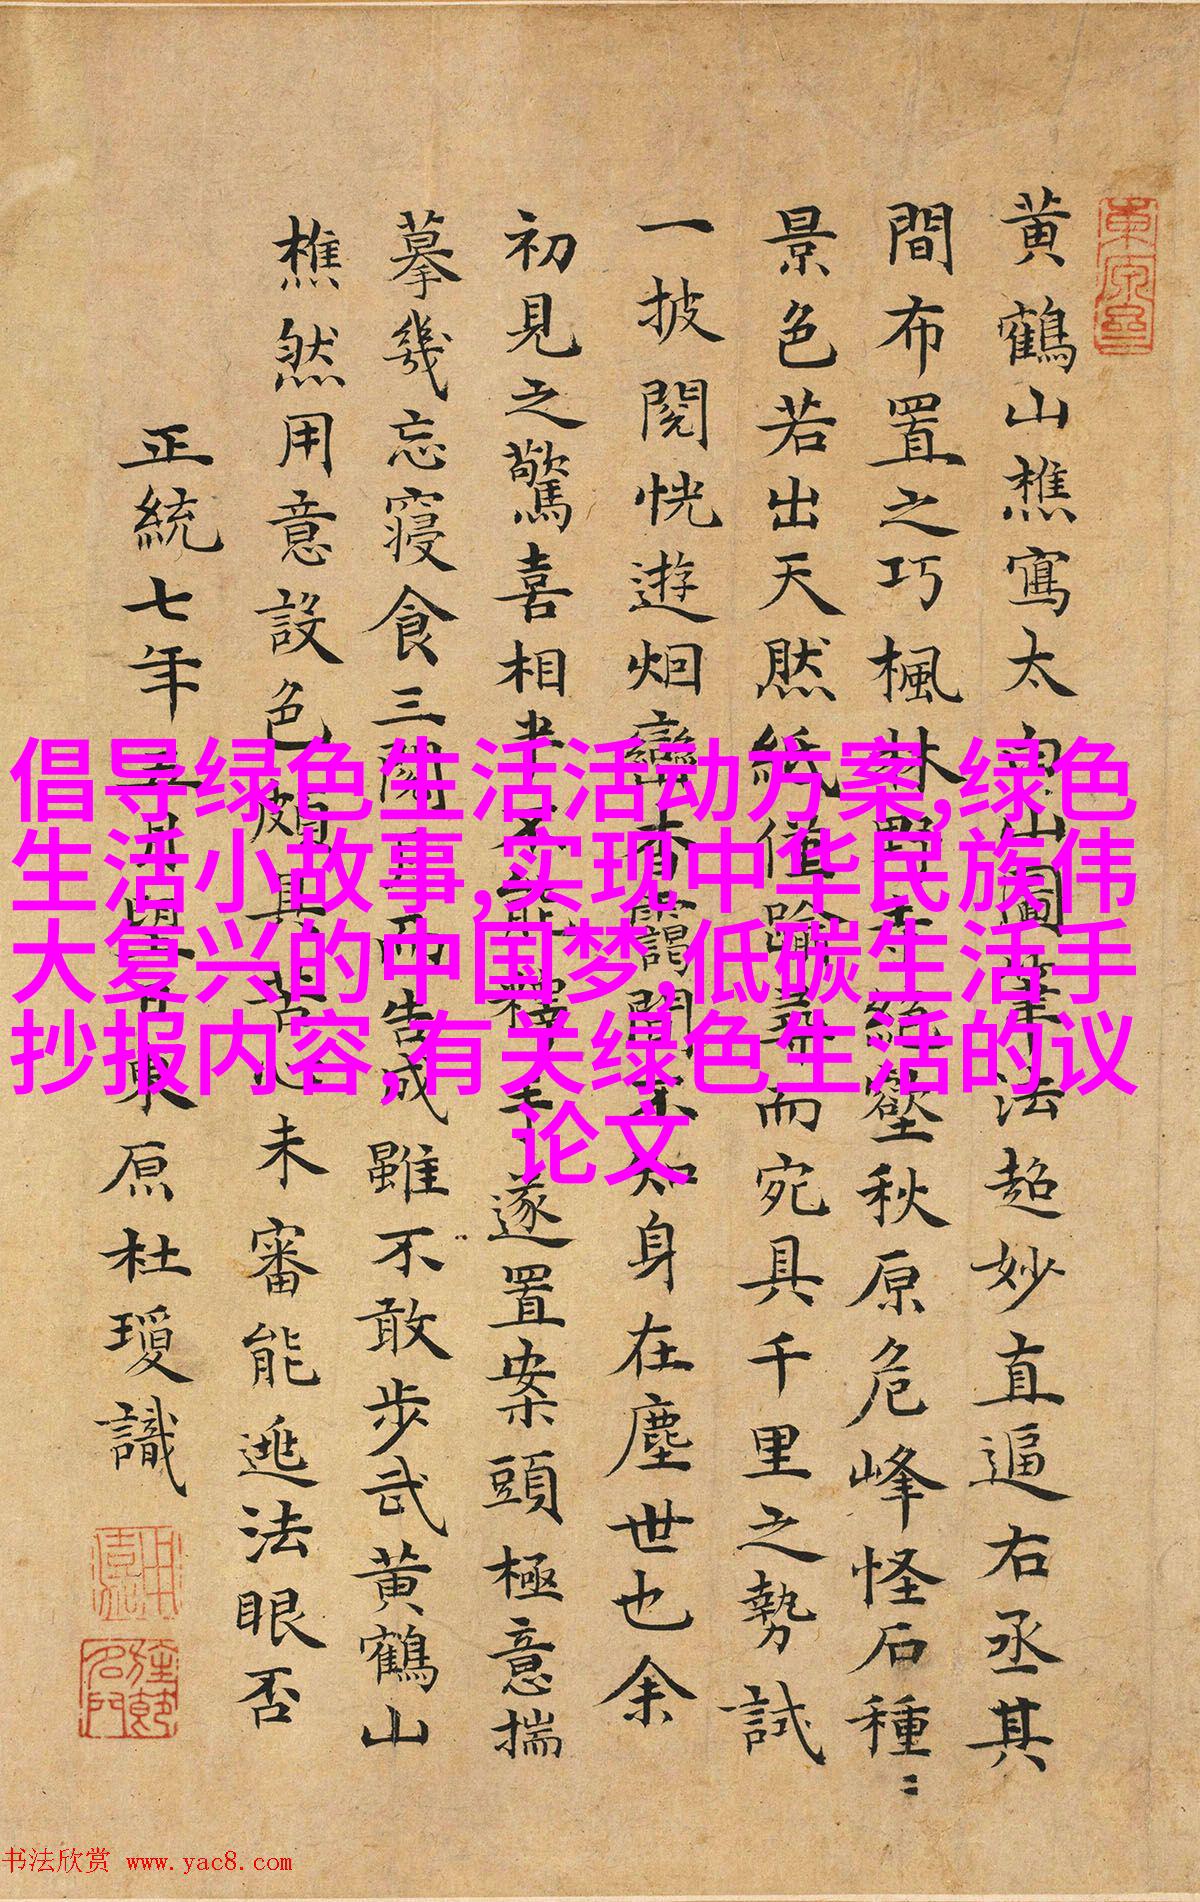 黄鶴山樵寫太白山圖筆法超妙直逼右丞其
間布置之巧楓林野寺絕壑秋原危峰怪石種〻
景色若出天然紙值踰尋而宛具千里之勢試
一披閱恍遊烟巒杳靄間不知身在塵世也余
初見之驚喜相半不能釋手遂置案頭極意揣
摹幾忘寢食三閱月而告成雖不敢步武黄鶴山
樵然用意設色頗具苦心未審能逃法眼否
正統七年月東原杜瓊識
倡导绿色生活活动方案,绿色
生活小故事,实现中华民族伟
大复兴的中国梦,低碳生活手
抄报内容,有关绿色生活的议
论文
书法欣赏 www.yac8.com